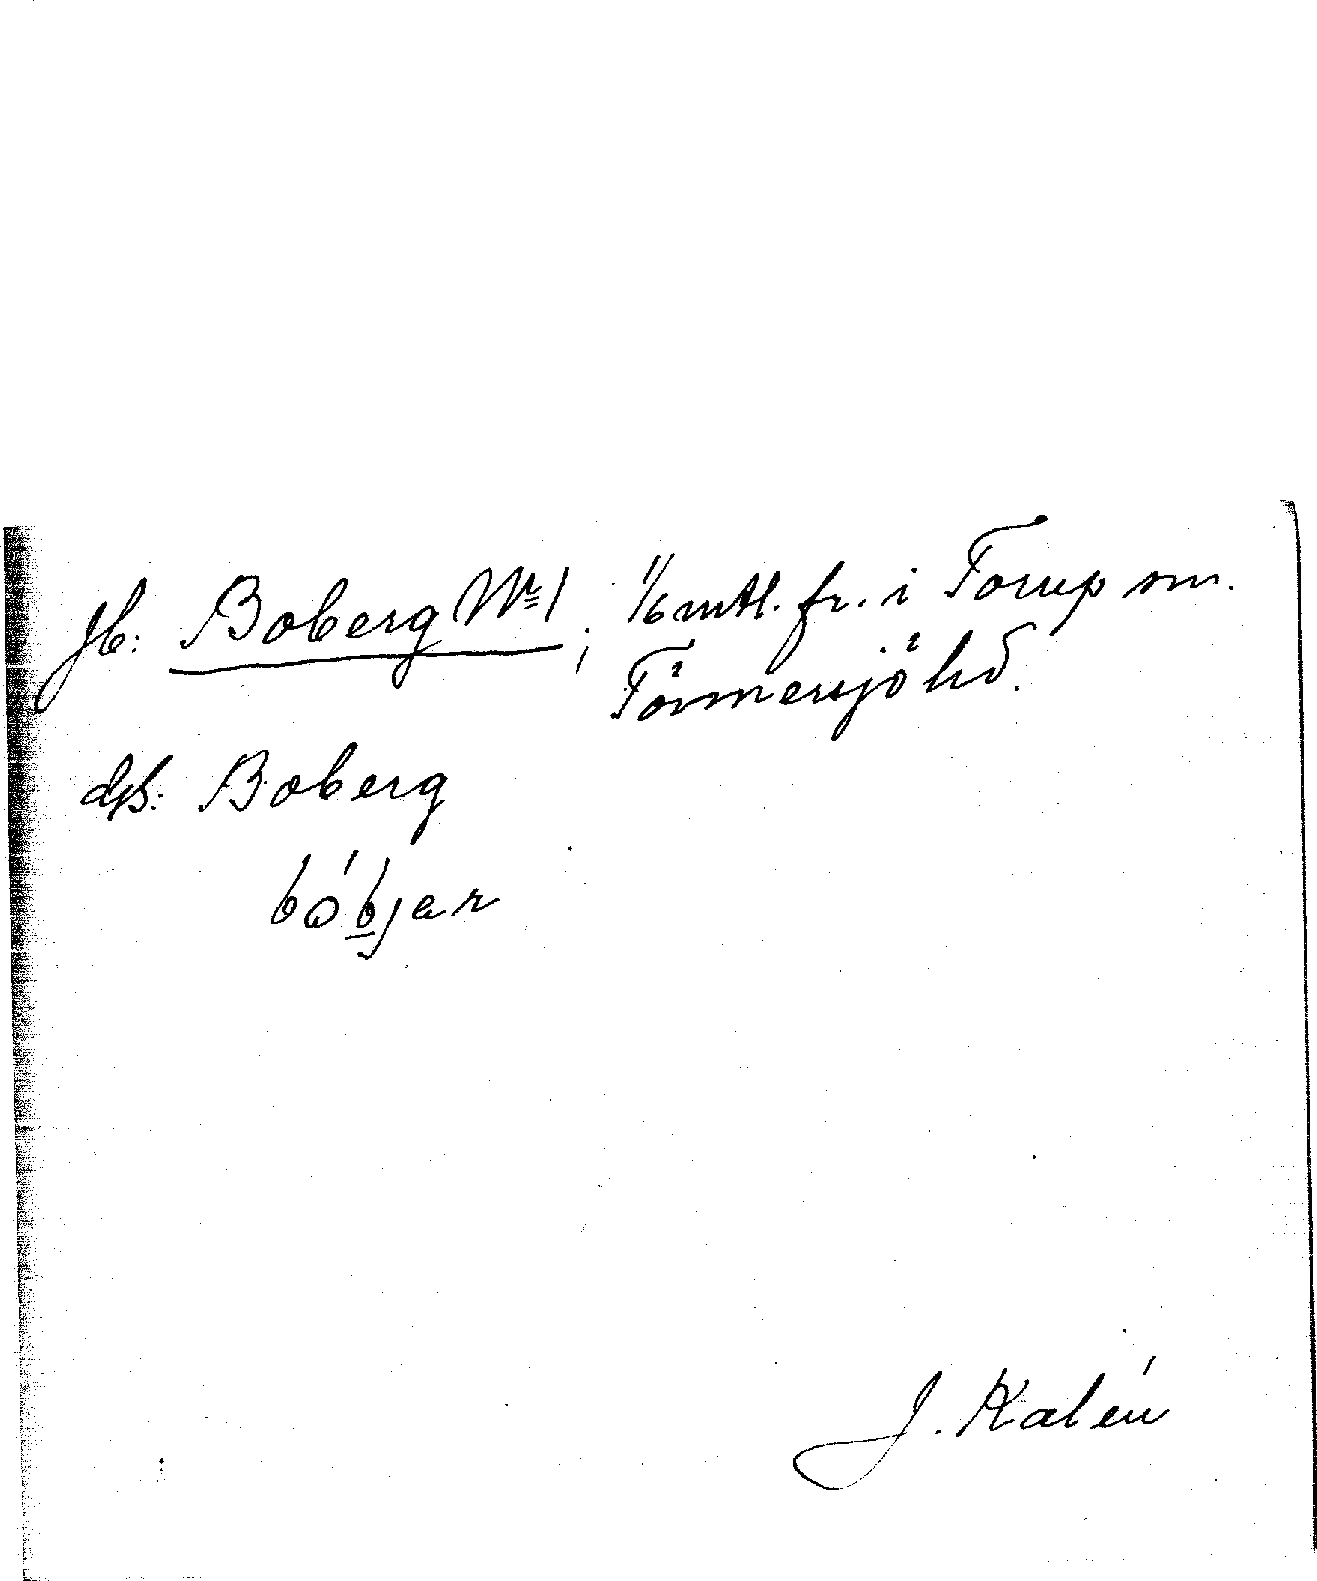 Jb: Boberg No 1; 1/6 mtl. fr. i Torup sn.
Tönnersjö hd.
dpb: Boberg
bó̱bjar
J. Kalén